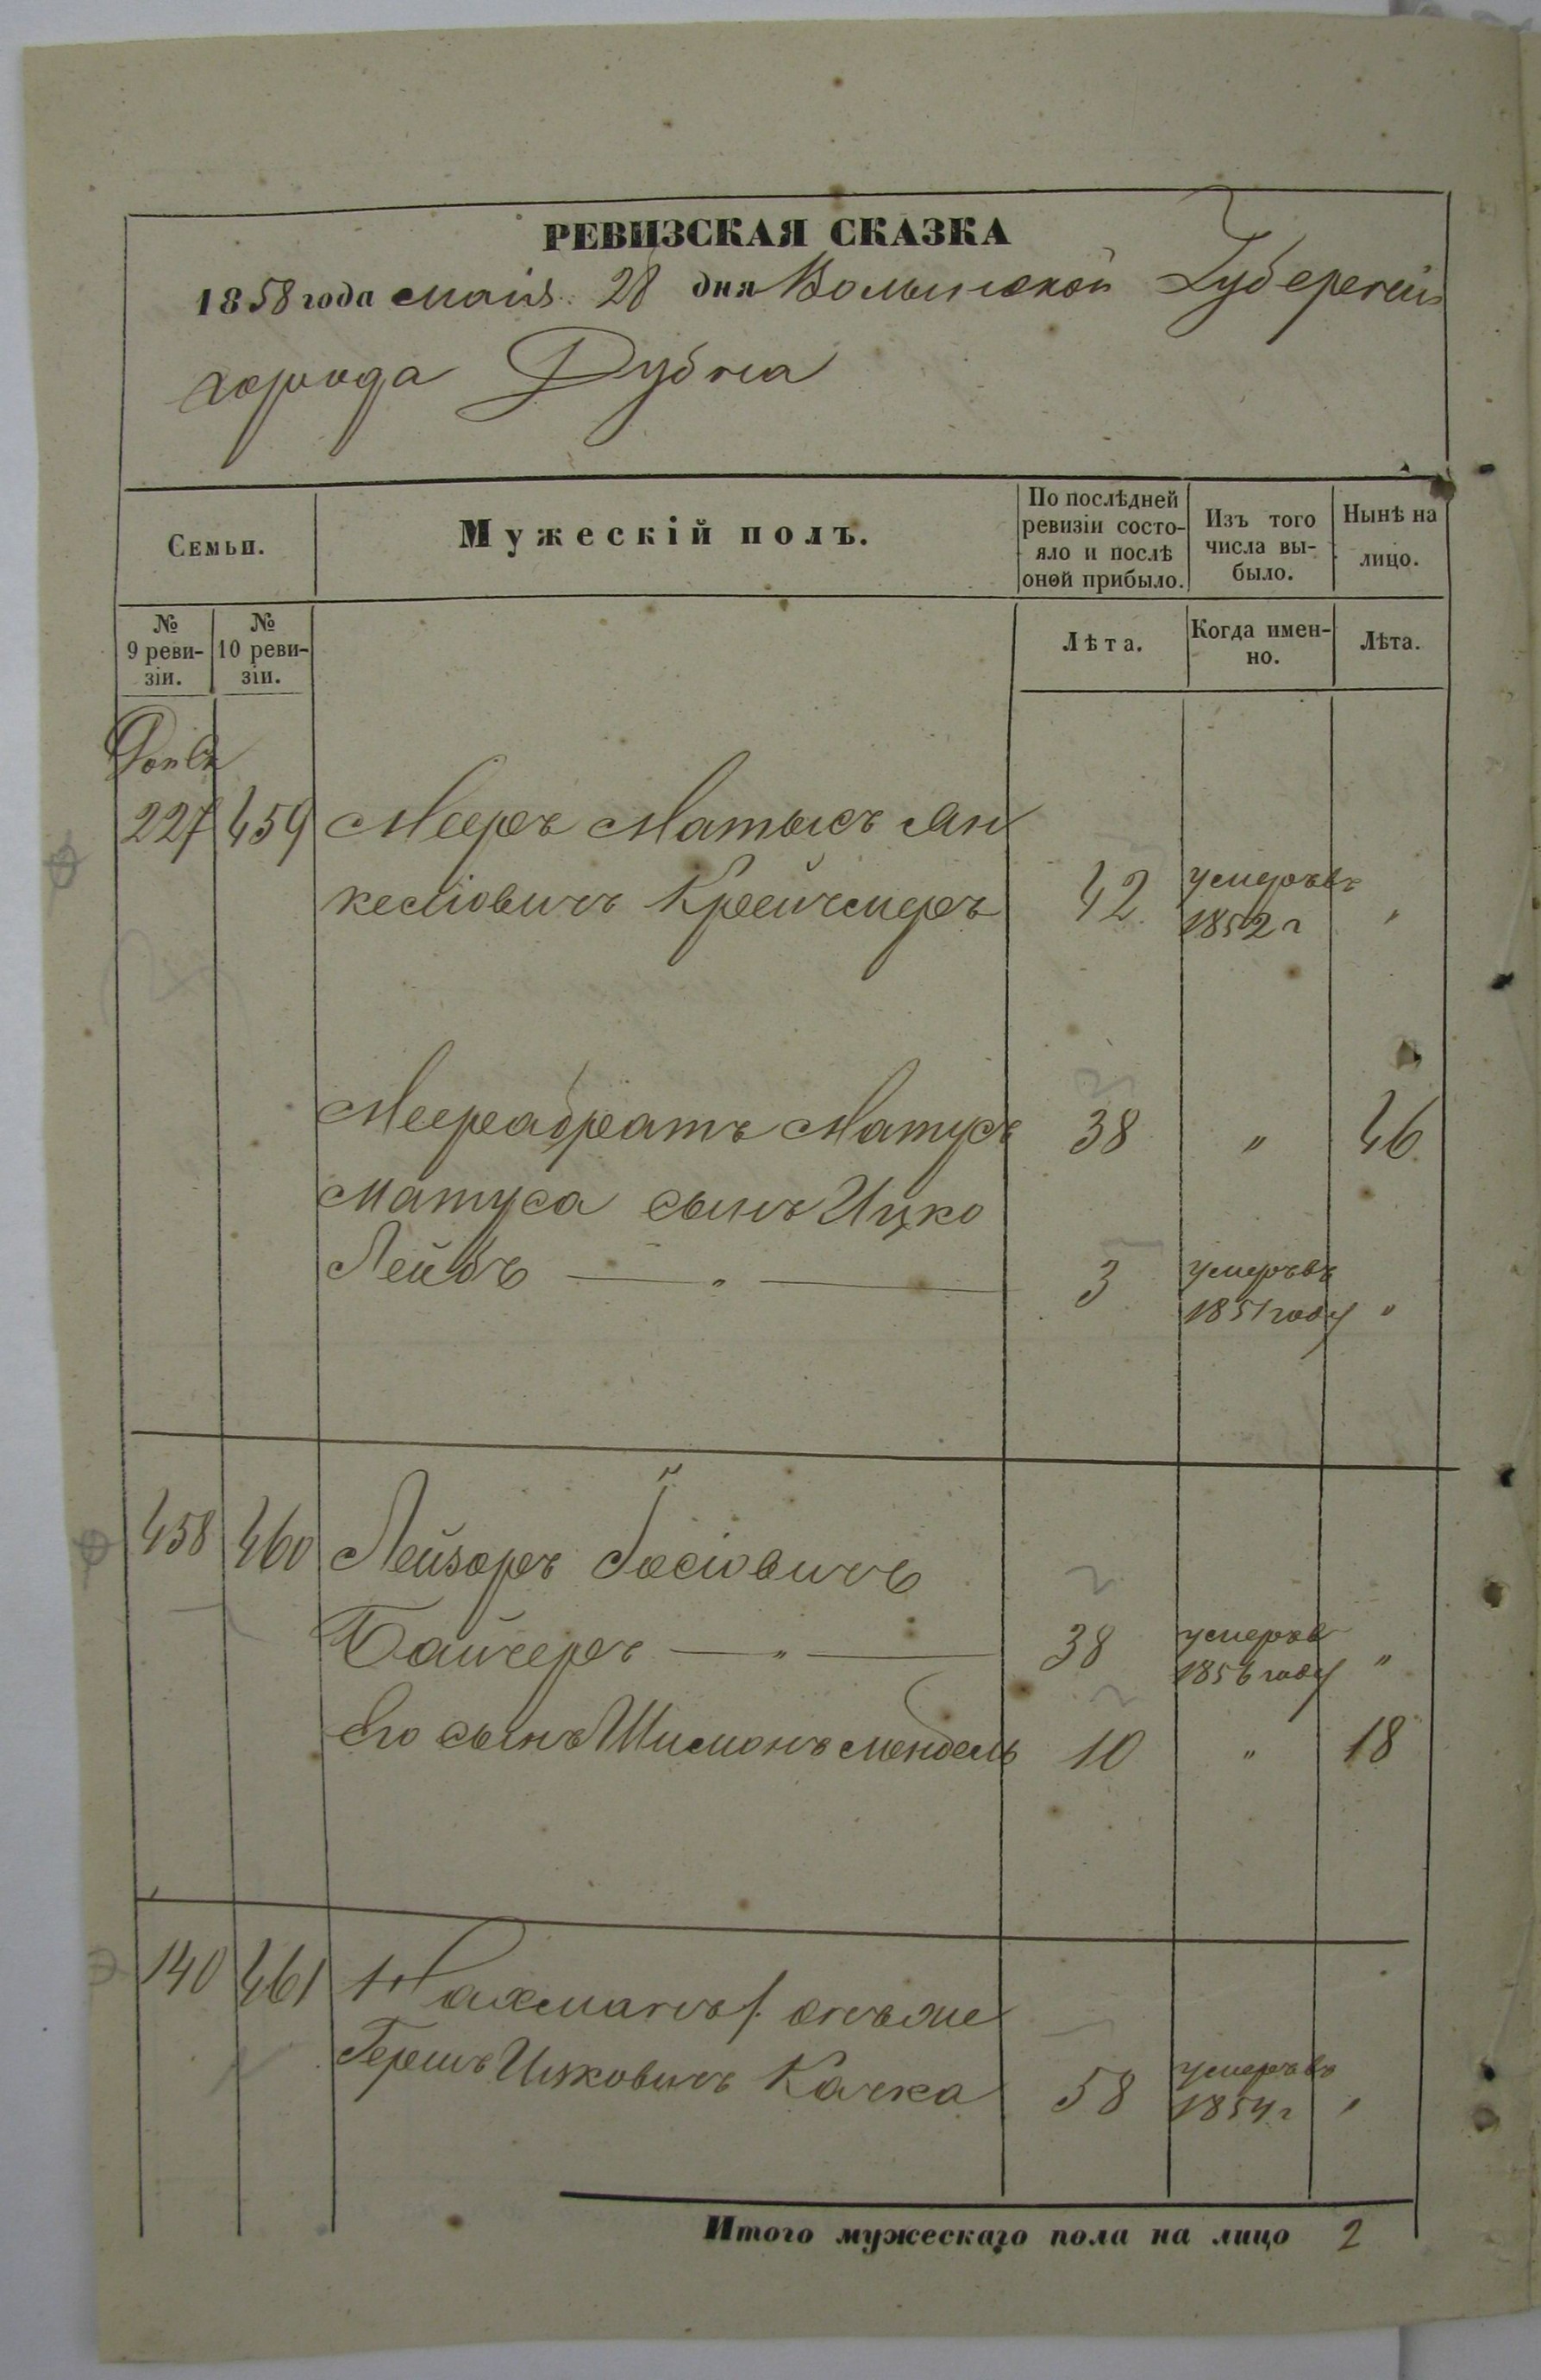 РЕВИЗСКАЯ СКАЗКА
1858 года маія 28 дня Волынской Губерніи
города Дубна
Семьи.
Мужескій полъ.
По послѣдней ревизіи состо-
яло и послѣ
оной прибыло.
Изъ того
числа вы-
было.
Нынѣ на
лицо.
№
9 реви-
зіи.
№
10 реви-
зіи.
Лѣта.
Когда имен-
но.
Лѣта.
227 459 Мееръ Матысъ Ян
келіовичъ Крейчмеръ 42 умеръ въ
1852 г "
Меера братъ Матусъ 38 " 46
Матуса сынъ Ицко
Лейбъ — " — 3 умеръ въ
1851 году "
458 460 Лейзоръ Іосіовичъ
Байчеръ — " — 38 умеръ в
1856 году "
Его сынъ Шимонъ Мендель 10 " 18
140 461 Нахманъ онъ же
Гершъ Ицковичъ Качка 58 умеръ въ
1854 г "
Итого мужескаго пола на лицо 2